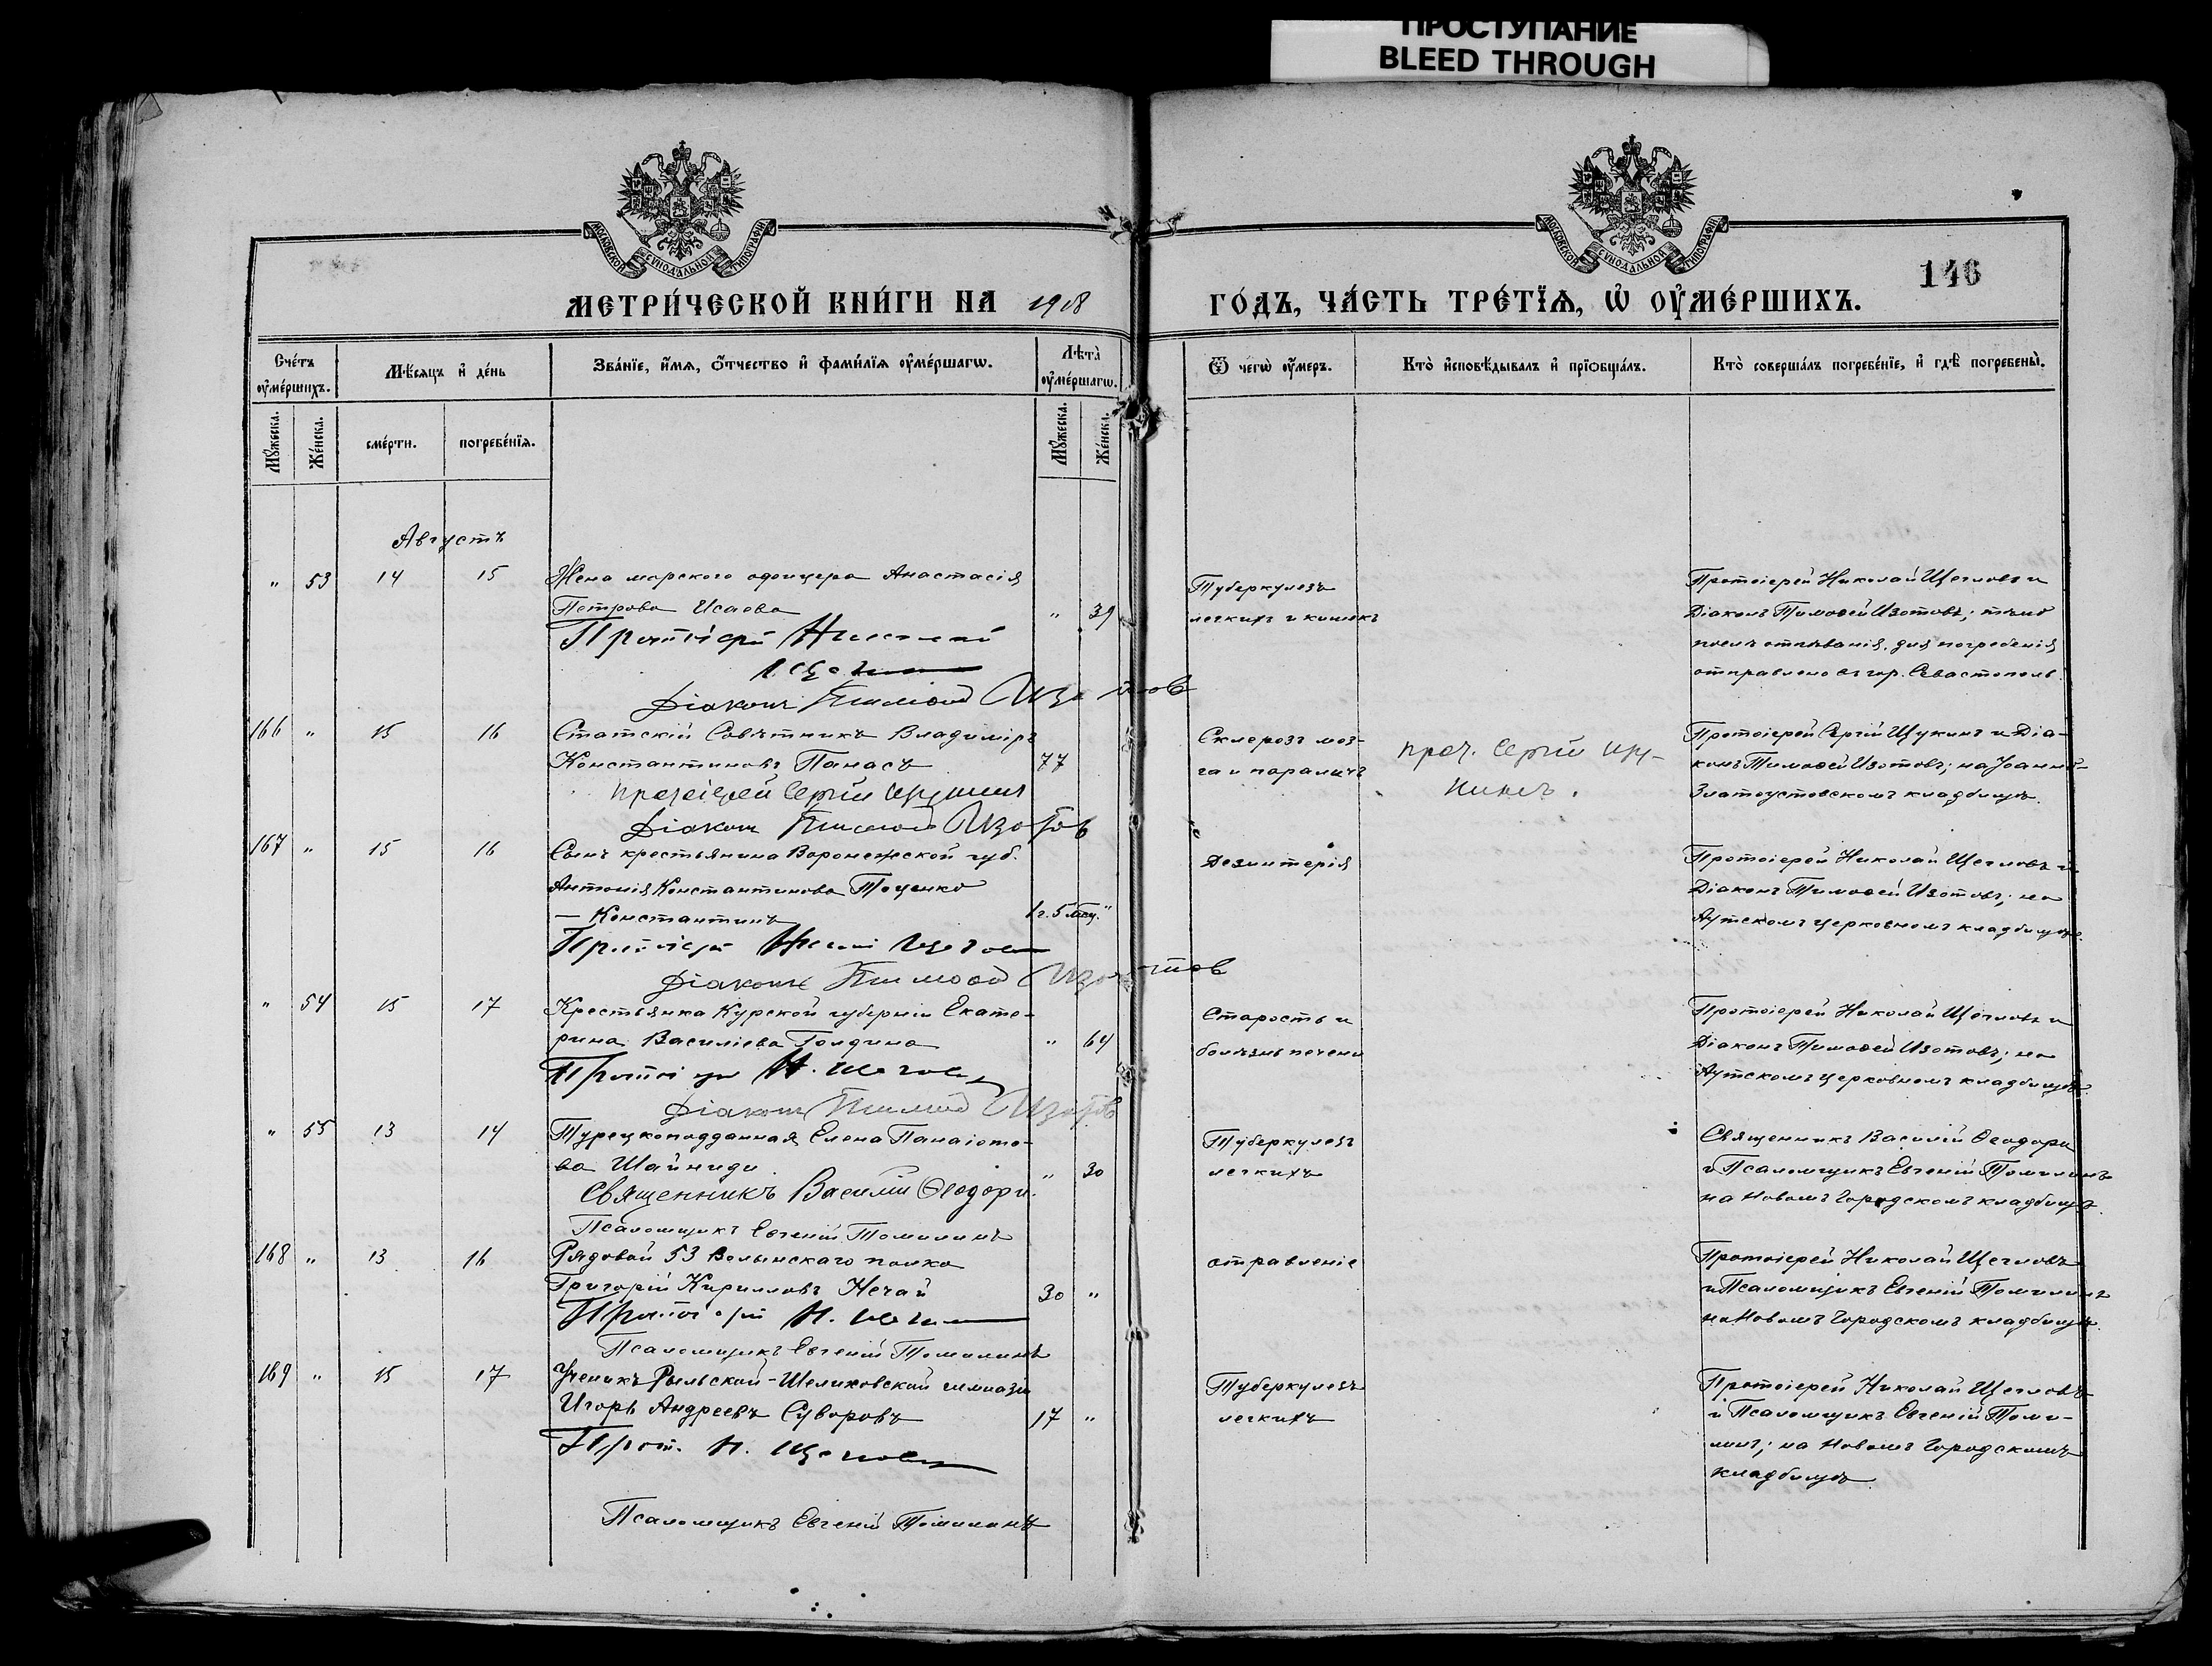 ПРОСТУПАНИЕ
BLEED THROUGH
МОСКОВСКОЙ СѴНОДАЛЬНОЙ ТИПОГРАФІИ
МОСКОВСКОЙ СѴНОДАЛЬНОЙ ТИПОГРАФІИ
146
МЕТРИ́ЧЕСКОЙ КНИ́ГИ НА 1918
ГО́ДЪ, ЧА́СТЬ ТРЕ́ТЇѦ, Ѡ҆ ОУ҆МЕ́РШИХЪ.
Сче́тъ оу҆ме́ршихъ.
Мѣ́сяцъ и҆ де́нь
Зва́нїе, и҆́мѧ, ѻ҆́тчество и҆ фами́лїѧ оу҆ме́ршагѡ.
Лѣта̀ оу҆ме́ршагѡ.
Ѿ чегѡ̀ оу҆́меръ.
Кто̀ и҆сповѣ́дывалъ и҆ прїѡбща́лъ.
Кто̀ соверша́лъ погребе́нїе, и҆ гдѣ̀ погребены̀.
Мꙋ́жеска.
Же́нска.
сме́рти.
погребе́нїѧ.
Мꙋ́жеска.
Же́нска.
Августъ
" 53 14 15 Жена морского офицера Анастасія
Петрова Исаева " 39
Протоіерей Николай
Щегловъ
Діаконъ Тимоѳей Изотов
Туберкулезъ
легкихъ и кишекъ
Протоіерей Николай Щегловъ и
Діаконъ Тимоѳей Изотовъ; тѣло
послѣ отпѣванія, для погребенія
отправлено въ гор. Севастополь.
166 " 15 16 Статскій Совѣтникъ Владиміръ
Константиновъ Панасъ 77
Протоіерей Сергій Щукинъ
Діаконъ Тимоѳей Изотов
Склерозъ моз-
га и параличъ
Прот. Сергій Щу-
кинъ.
Протоіерей Сергій Щукинъ и Діа-
конъ Тимоѳей Изотовъ; на Іоанно-
Златоустовскомъ кладбищѣ.
167 " 15 16 Сынъ крестьянина Воронежской губ.
Антонія Константинова Тоценко
— Константинъ 1 г. 5 мѣц. "
Протоіерей Николай Щеглов
Діаконъ Тимоѳей Изотов
Дезинтерія
Протоіерей Николай Щегловъ и
Діаконъ Тимоѳей Изотовъ; на
Аутскомъ церковномъ кладбищѣ.
" 54 15 17 Крестьянка Курской губерніи Екате-
рина Василіева Голдина " 64
Протоіерей Н. Щеглов
Діаконъ Тимоѳей Изотов
Старость и
болѣзнь печени
Протоіерей Николай Щегловъ и
Діаконъ Тимоѳей Изотовъ; на
Аутскомъ церковномъ кладбищѣ.
" 55 13 14 Турецкоподданная Елена Панаіото-
ва Шайниди. " 30
Священникъ Василій Ѳеодори.
Псаломщикъ Евгеній Томилинъ
Туберкулезъ
легкихъ
Священникъ Василій Ѳеодори
и Псаломщикъ Евгеній Томилинъ
на Новомъ Городскомъ кладбищѣ.
168 " 13 16 Рядовой 53 Волынскаго полка
Григорій Кирилловъ Нечай 30 "
Протоіерей Н. Щеглов
Псаломщикъ Евгеній Томилинъ
отравленіе
Протоіерей Николай Щегловъ
и Псаломщикъ Евгеній Томилинъ
на Новомъ Городскомъ кладбищѣ.
169 " 15 17 Ученикъ Рыльской-Шелиховской гимназіи
Игорь Андреевъ Суворовъ 17 "
Прот. Н. Щегловъ
Псаломщикъ Евгеній Томилинъ
Туберкулезъ
легкихъ
Протоіерей Николай Щегловъ
и Псаломщикъ Евгеній Томи-
линъ; на Новомъ Городскомъ
кладбищѣ